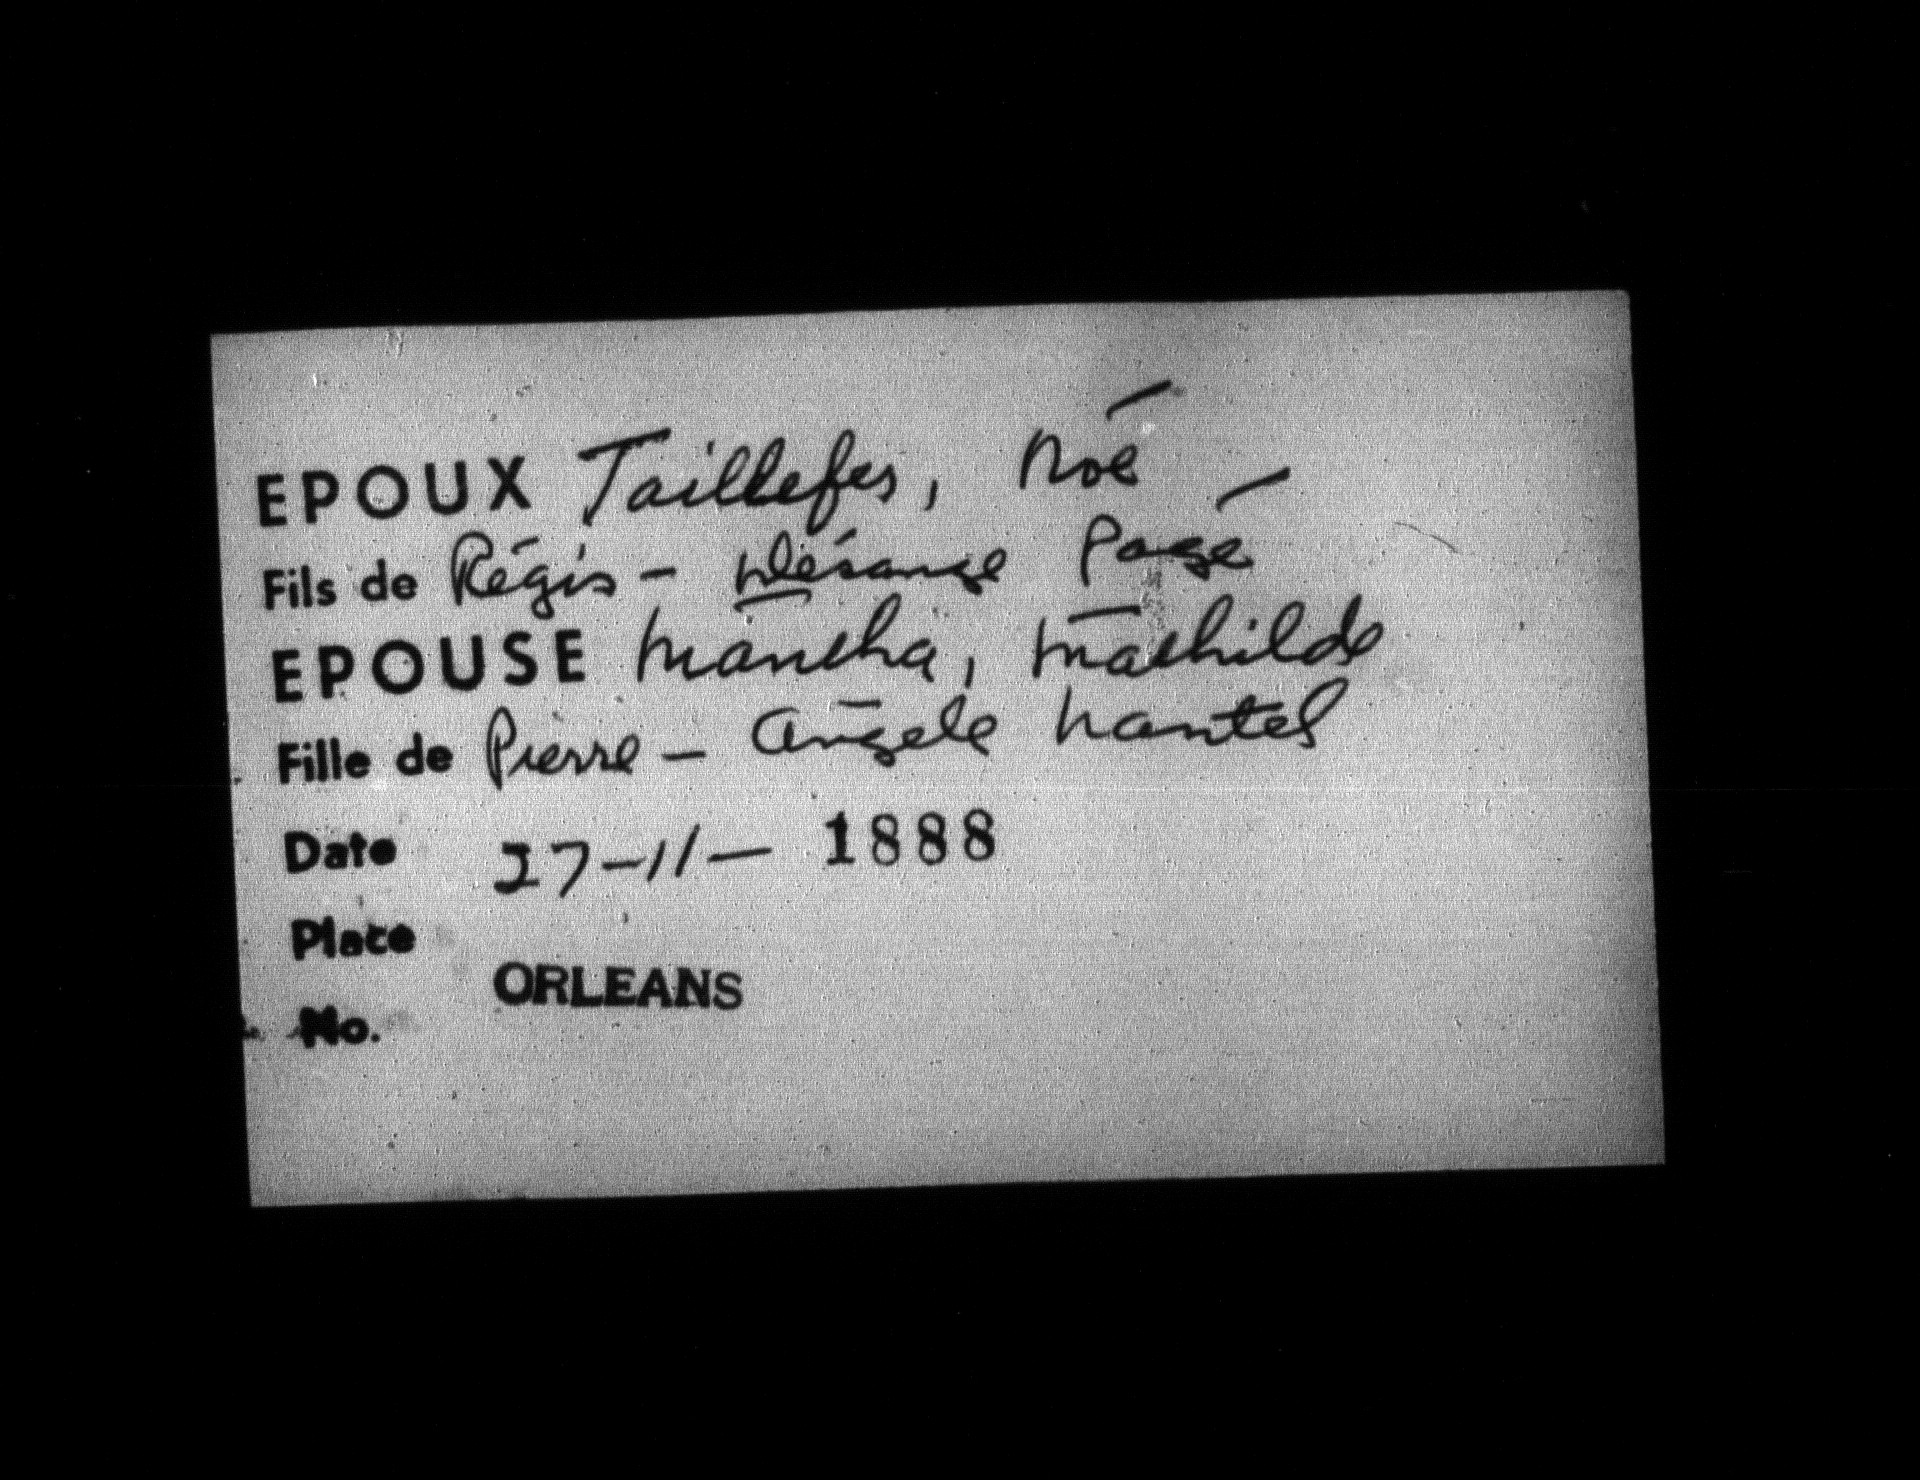 EPOUX Taillefer, Noé
Fils de Régis - Désange Pagé
EPOUSE Mantha, Mathilde
Fille de Pierre - Angele Nantel
Date 27-11- 1888
Place
ORLEANS
No.